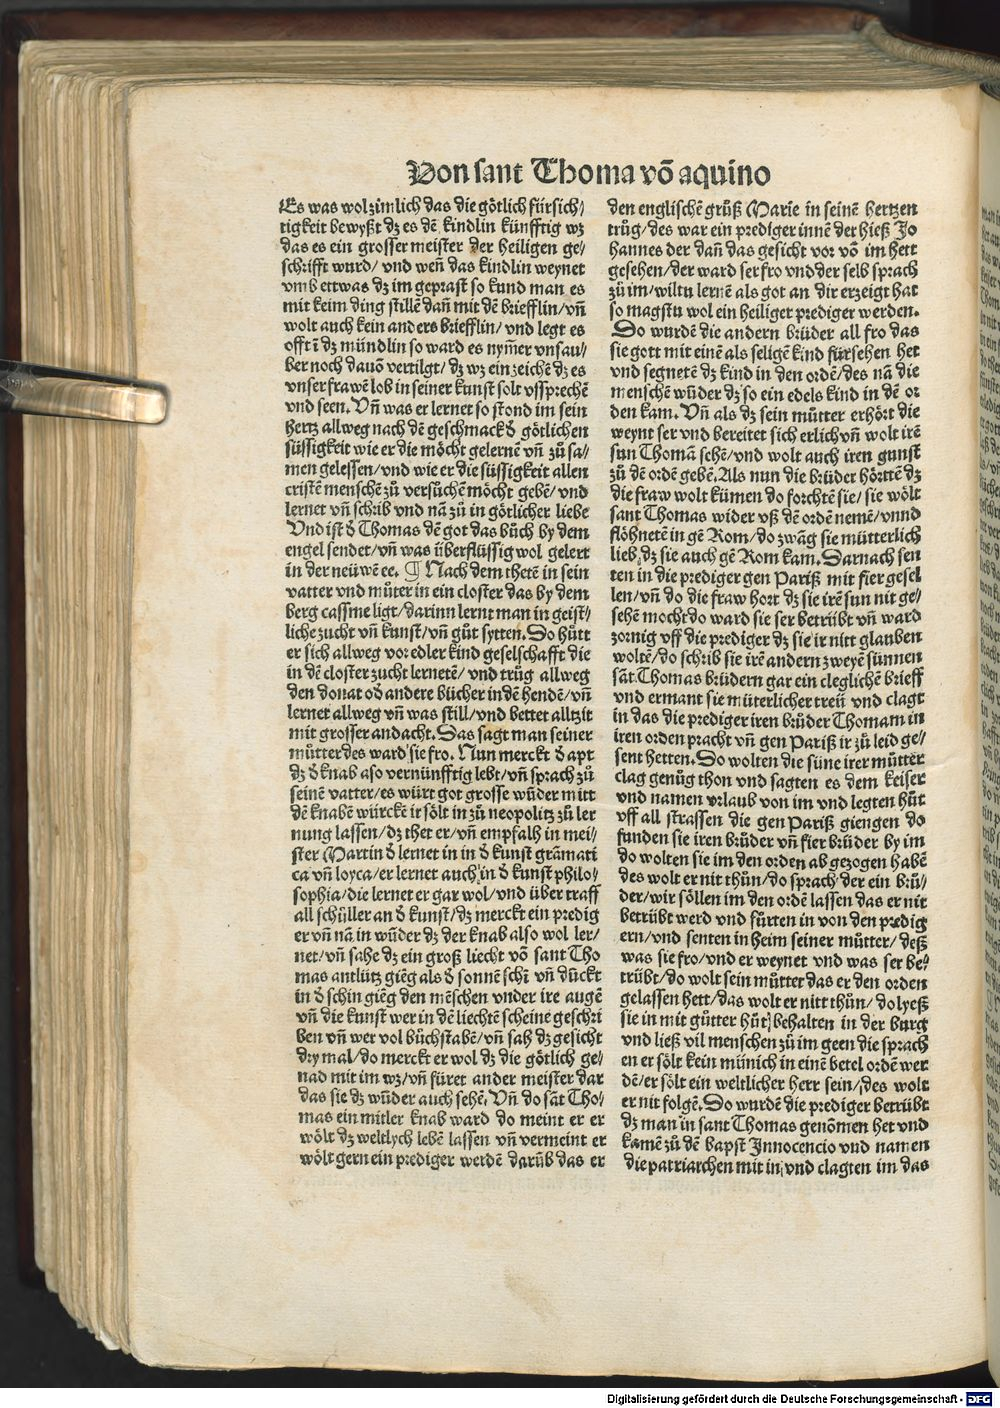 Von sant Thoma võ aquino
Es was wol zimlich das die götlich fürsich/
tigkeit bewyßt dz es dẽ kindlin künfftig wz
das es ein grosser meister der heiligen ge/
schrifft wurd/ vnd weñ das kindlin weynet
vmb ettwas dz im geprast so kund man es
mit keim ding stillẽ dañ mit dẽ briefflin/ vñ
wolt auch kein anders briefflin/ vnd legt es
offt ĩ dz mündlin so ward es nym̃er vnsau/
ber noch dauõ vertilgt/ dz wz ein zeichẽ dz es
vnser frawẽ lob in seiner kunst solt vssprechẽ
vnd seen. Vñ was er lernet so stond im sein
hertz allweg nach dẽ geschmack d̕ götlichen
süssigkeit wie er die möcht gelernẽ vñ zů sa/
men gelessen/ vnd wie er die süssigkeit allen
cristẽ menschẽ zů versůchẽ möcht gebẽ/ vnd
lernet vñ schrib vnd nã zů in götlicher liebe
Vnd ist d̕ Thomas dẽ got das bůch by dem
engel sendet/ vñ was überflüssig wol gelert
in der neüwẽ ee. ¶ Nach dem thetẽ in sein
vatter vnd můter in ein closter das by dem
berg cassme ligt/ darinn lernt man in geist/
liche zucht vñ kunst/ vñ gůt sytten. So hůtt
er sich allweg vor edler kind geselschafft die
in dẽ closter zucht lernetẽ/ vnd trůg allweg
den donat od̕ andere bücher in dẽ hendẽ/ vñ
lernet allweg vñ was still/ vnd bettet alltzit
mit grosser andacht. Das sagt man seiner
můtter des ward sie fro. Nun merckt d̕ apt
dz d̕ knab aso vernünfftig lebt/ vñ sprach zů
seinẽ vatter/ es würt got grosse wũder mitt
dẽ knabẽ würckẽ ir sölt in zů neopolitz zů ler
nung lassen/ dz thet er/ vñ empfalh in mei/
ster Martin d̕ lernet in in d̕ kunst grãmati
ca vñ loyca/ er lernet auch in d̕ kunst philo/
sophia/ die lernet er gar wol/ vnd über traff
all schüller an d̕ kunst/ dz merckt ein predig
er vñ nã in wũder dz der knab also wol ler/
net/ vñ sahe dz ein groß liecht võ sant Tho
mas antlütz giẽg als d̕ sonnẽ schĩ vñ dũckt
in d̕ schin giẽg den mẽschen vnder ire augẽ
vñ die kunst wer in dẽ liechtẽ scheine geschri
ben vñ wer vol bůchstabẽ/ vñ sah dz gesicht
dry mal/ do merckt er wol dz die götlich ge/
nad mit im wz/ vñ füret ander meister dar
das sie dz wũder auch sehẽ. Vñ do sãt Tho/
mas ein mitler knab ward do meint er er
wölt dz weltlych lebẽ lassen vñ vermeint er
wölt gern ein prediger werdẽ darũb das er
den englischẽ grůß Marie in seinẽ hertzen
trůg/ des war ein prediger innẽ der hieß Jo
hannes der dañ das gesicht vor võ im hett
gesehen/ der ward ser fro vnd der selb sprach
zů im/ wiltu lernẽ als got an dir erzeigt hat
so magstu wol ein heiliger prediger werden.
Do wurdẽ die andern brüder all fro das
sie gott mit einẽ als seligẽ kind fürsehen het
vnd segnetẽ dz kind in den ordẽ/ des nã die
menschẽ wũder dz so ein edels kind in dẽ or
den kam. Vñ als dz sein mütter erhört die
weynt ser vnd bereitet sich erlich vñ wolt irẽ
sun Thomã sehẽ/ vnd wolt auch iren gunst
zů dẽ ordẽ gebẽ. Als nun die brüder hörttẽ dz
die fraw wolt kümen do forchtẽ sie/ sie wölt
sant Thomas wider vß dẽ ordẽ nemẽ/ vnnd
flöhnetẽ in gẽ Rom/ do zwãg sie mütterlich
lieb, dz sie auch gẽ Rom kam. Darnach sen
ten in die prediger gen Pariß mit fier gesel
len/ vñ do die fraw hort dz sie irẽ sun nit ge/
sehẽ mocht do ward sie ser betrübt vñ ward
zornig vff die prediger dz sie ir nitt glauben
woltẽ/ do schrib sie irẽ andern zweyẽ sünnen
sãt Thomas brüdern gar ein cleglichẽ brieff
vnd ermant sie müterlicher treü vnd clagt
in das die prediger iren brůder Thomam in
iren orden pracht vñ gen Pariß ir zů leid ge/
sent hetten. Do wolten die süne irer můtter
clag genůg thon vnd sagten es dem keiser
vnd namen vrlaub von im vnd legten hůt
vff all strassen die gen Pariß giengen do
funden sie iren brůder vñ fier brüder by im
do wolten sie im den orden ab gezogen habẽ
des wolt er nit thůn/ do sprach der ein brů/
der/ wir söllen im den ordẽ lassen das er nit
betrübt werd vnd fürten in von den predig
ern/ vnd senten in heim seiner můtter/ deß
was sie fro/ vnd er weynet vnd was ser be/
trübt/ do wolt sein můtter das er den orden
gelassen hett/ das wolt er nitt thůn/ do lyeß
sie in mit gůtter hůt behalten in der burg
vnd ließ vil menschen zů im geen die sprach
en er sölt kein münich in einẽ betel ordẽ wer
dẽ/ er sölt ein weltlicher herr sein/ des wolt
er nit folgẽ. Do wurdẽ die prediger betrübt
dz man in sant Thomas genõmen het vnd
kamẽ zů dẽ bapst Innocencio vnd namen
die patriarchen mit in/ vnd clagten im das
Digitalisierung gefördert durch die Deutsche Forschungsgemeinschaft - DFG